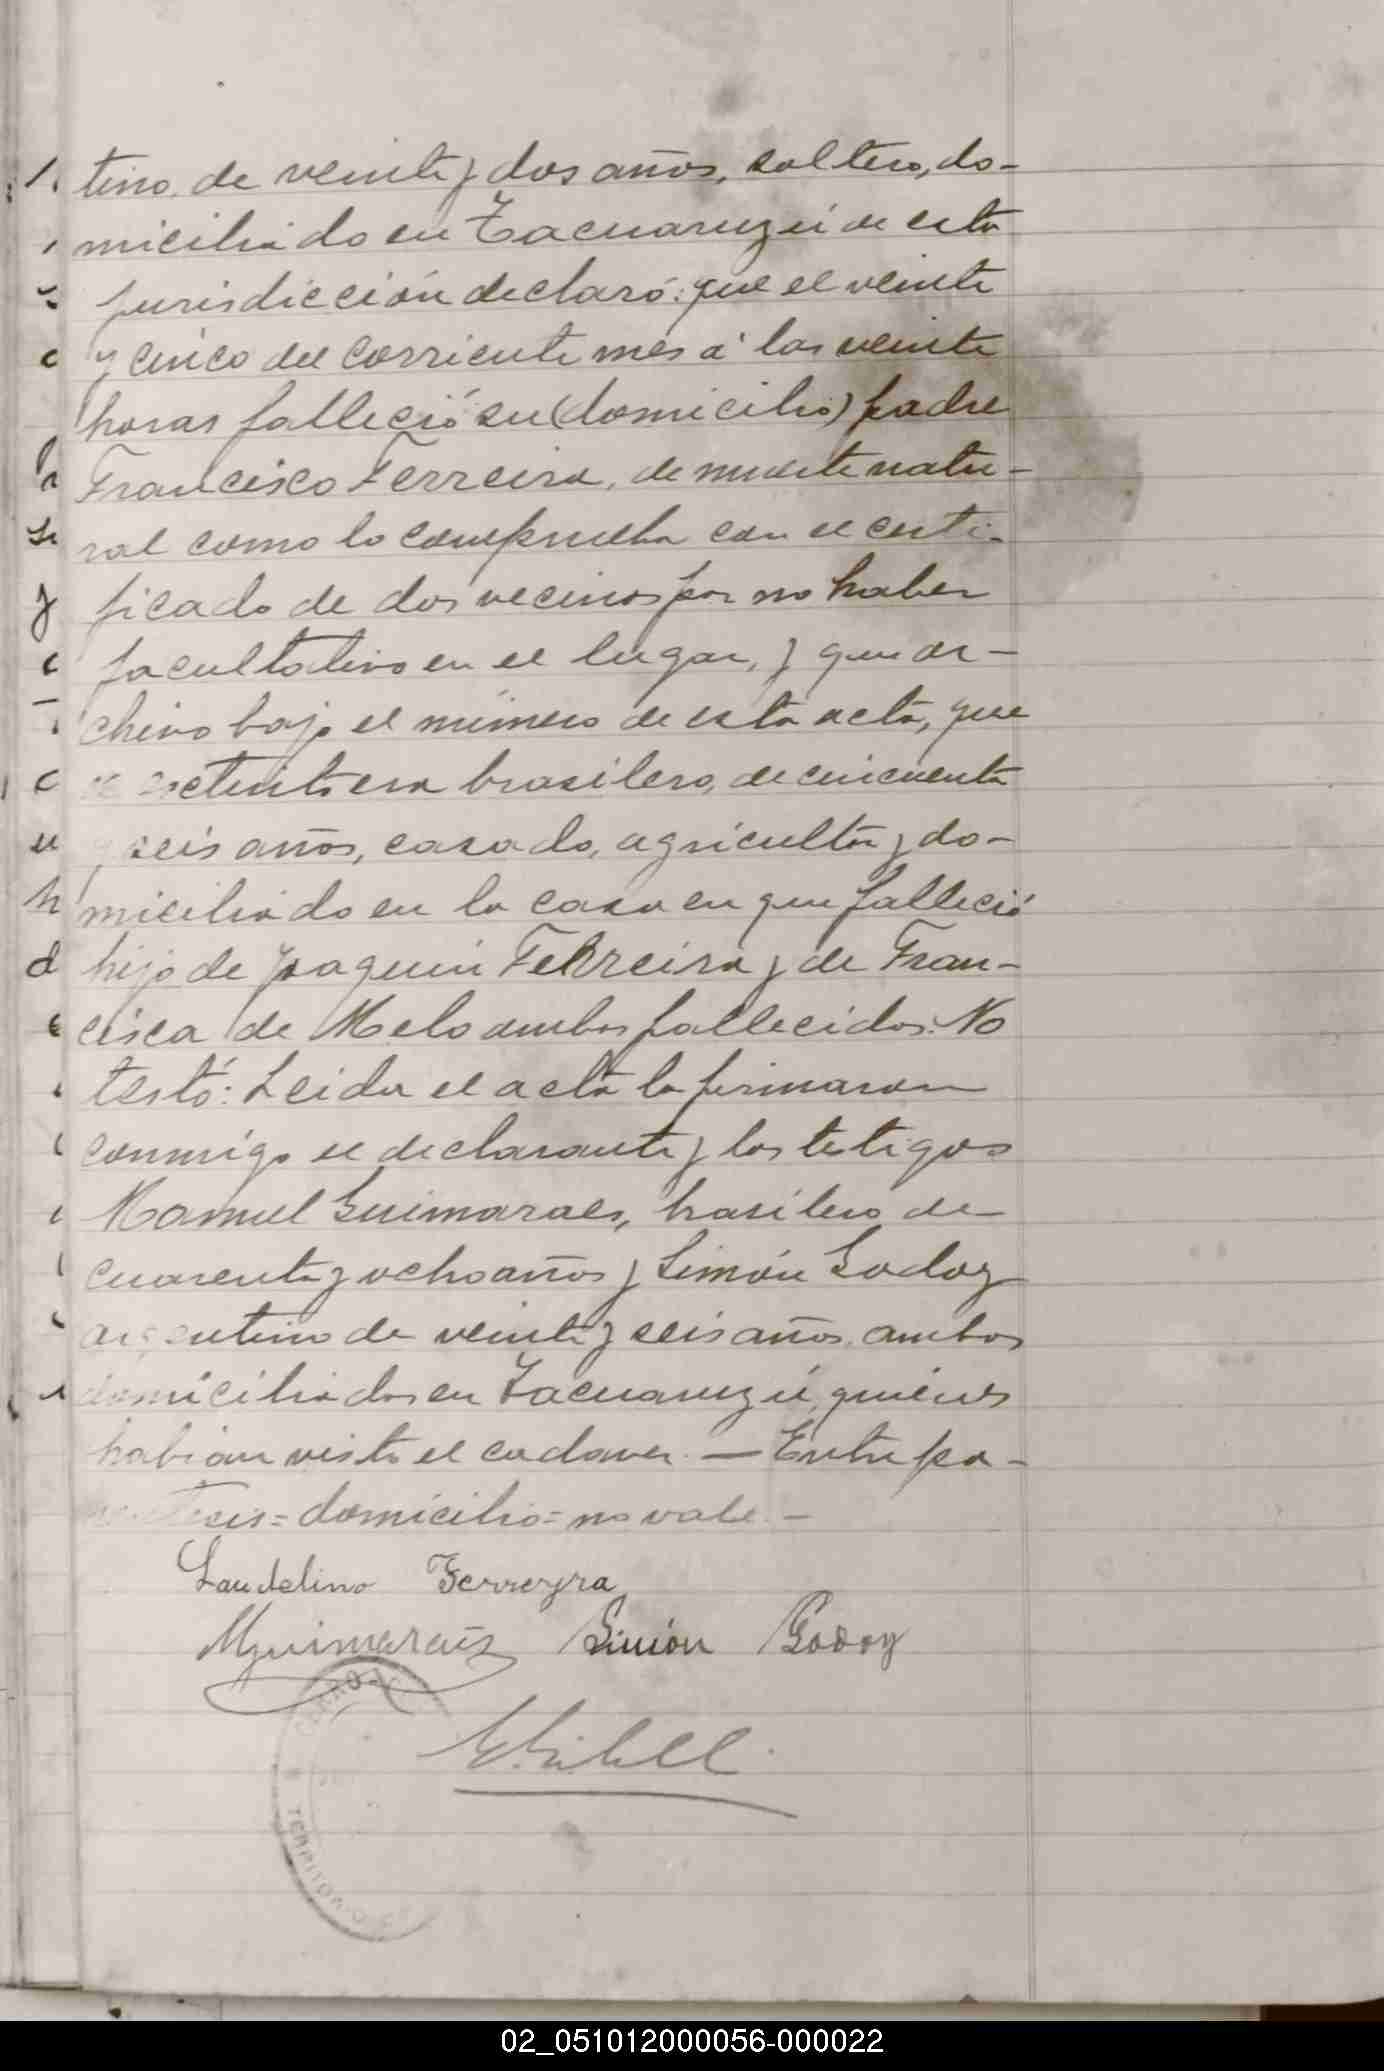 tino, de veinte y dos años, soltero, do-
miciliado en Tacuaruzú de esta
jurisdicción declaró: que el veinte
y cinco del corriente mes á las veinte
horas falleció su (domicilio) padre
Francisco Ferreira, de muerte natu-
ral como lo comprueba con el certi-
ficado de dos vecinos por no haber
facultativo en el lugar, y que ar-
chivo bajo el número de esta acta, que
el extinto era brasilero, de cincuenta
y seis años, casado, agricultor y do-
miciliado en la casa en que falleció
hijo de Joaquin Ferreira y de Fran-
cisca de Melo ambos fallecidos. No
testó: Leida el acta la firmaron
conmigo el declarante y los testigos
Manuel Guimaraes, brasilero de
cuarenta y ocho años y Simón Godoy
argentino de veinte y seis años, ambos
domiciliados en Tacuaruzú, quienes
habian visto el cadaver. — Entre pa-
rentesis = domicilio = no vale. -
Laudelino Ferreyra
MGuimarães Simón Godoy
TERRITORIO
02_051012000056-000022